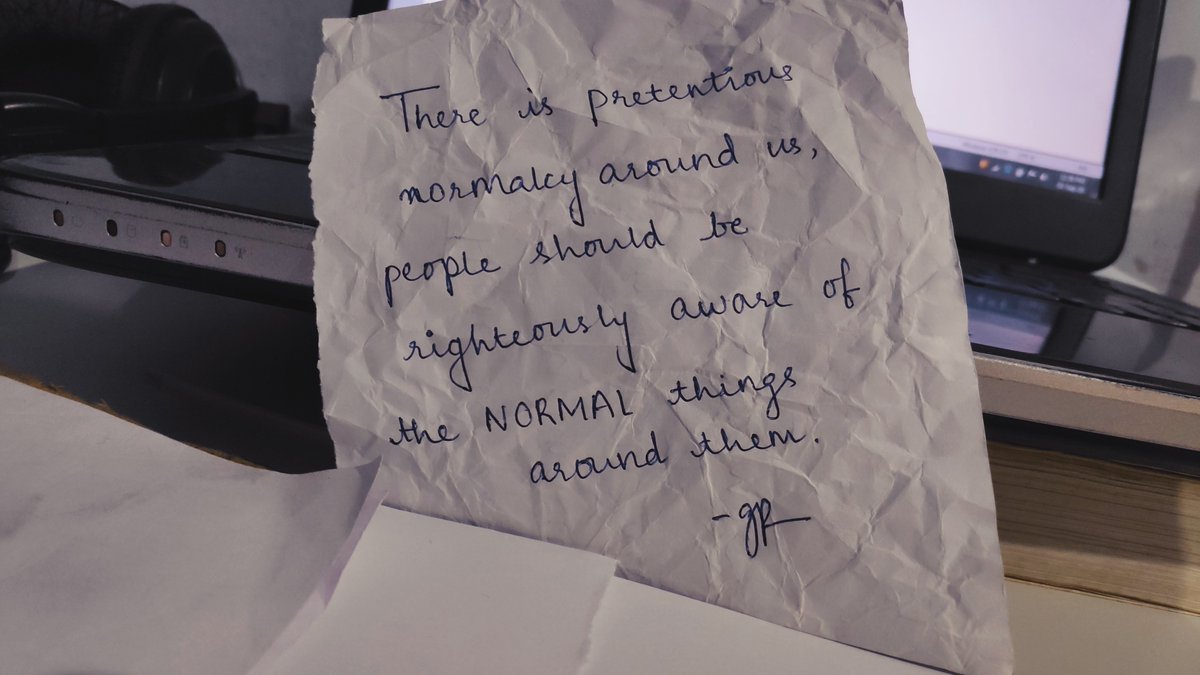 There is pretentious
normalcy around us,
people should be
righteously aware of
the NORMAL things
around them.
- gR